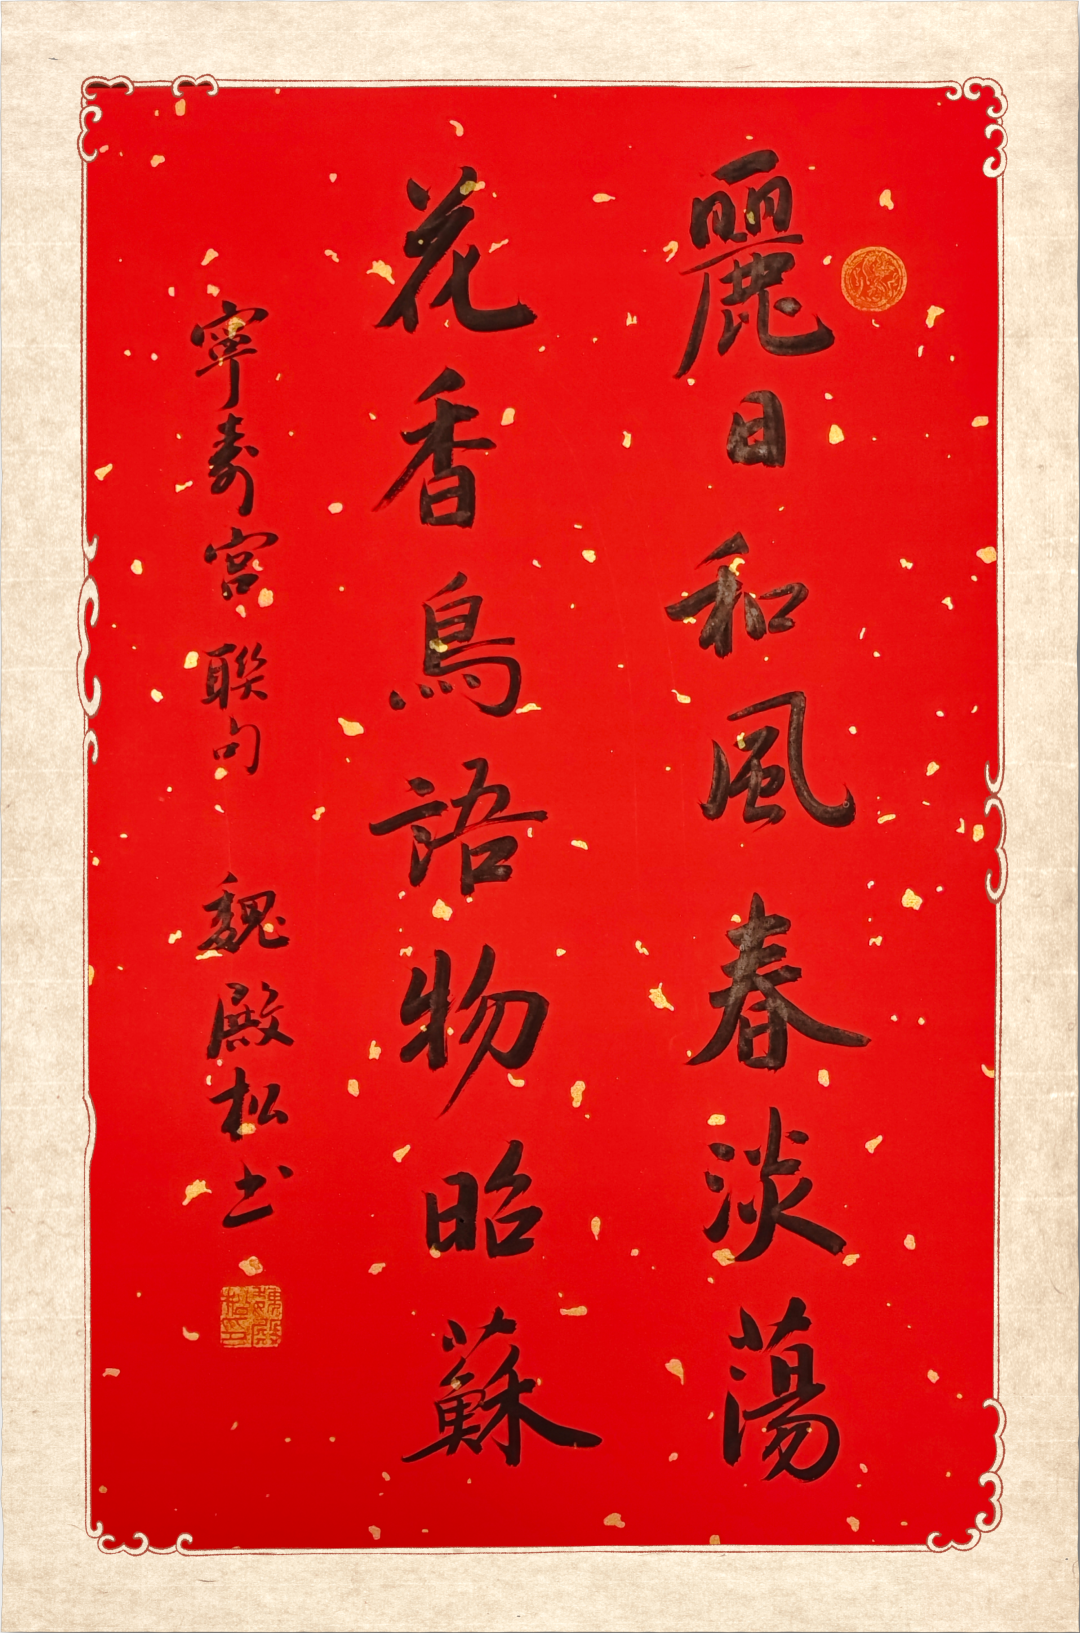 麗日和風春淡蕩
花香鳥語物昭蘇
寧壽宮聯句 魏殿松书
魏殿松印